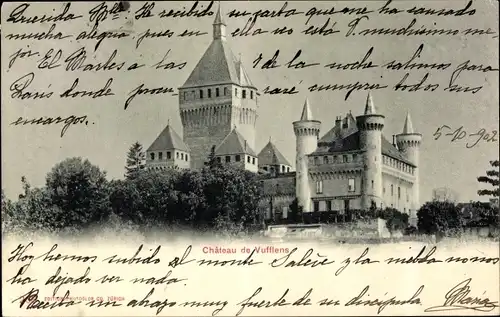 Querida Blle. He recibido su carta que me ha causado
mucha alegria pues en ella no está T. muchísimo me-
jor.
El Martes a las 7 de la noche salimos para
Paris donde procuraré cumplir todos sus
encargos.
5-10-902
Château de Vufflens
Hoy hemos subido al monte Salève y la niebla no nos
ha dejado ver nada.
EDITION PHOTOGLOB CO. ZÜRICH
Reciba un abrazo muy fuerte de su discipula
Maria